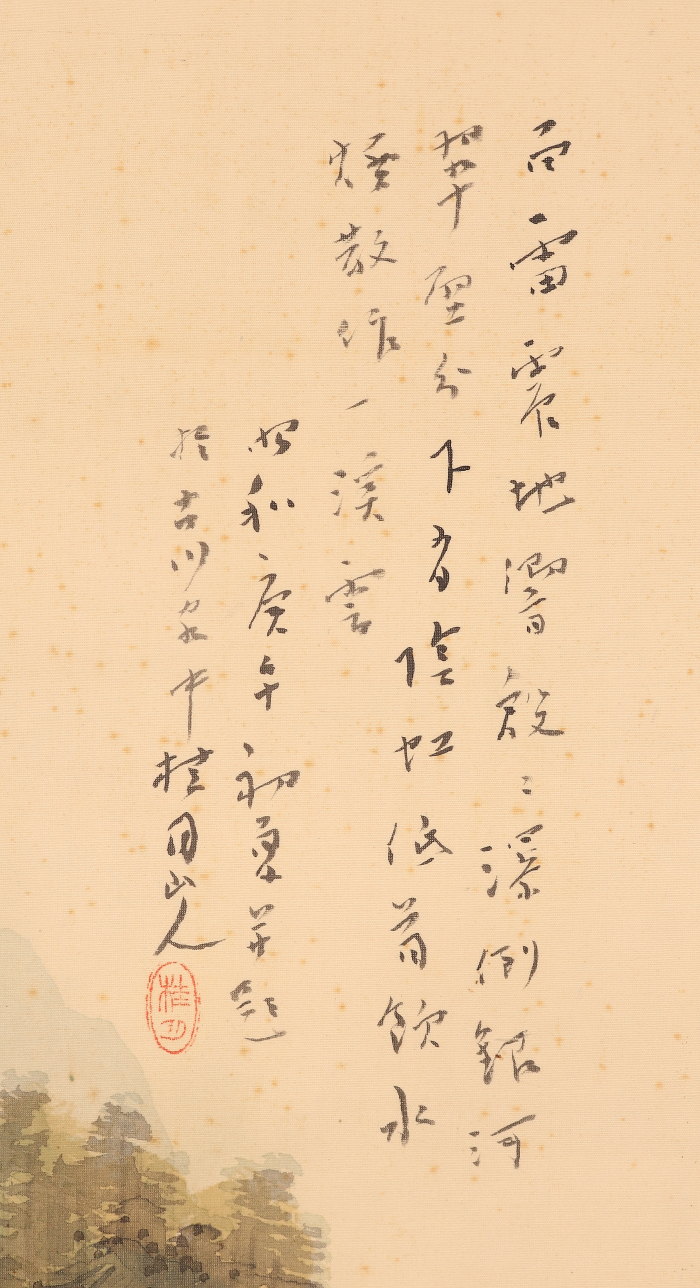 百雷震地響殷〻瀑倒銀河
翠壁分下有陰虹低首飲水
煙散作一溪雲
昭和庚午初夏并題
於古川中桂月山人
桂月